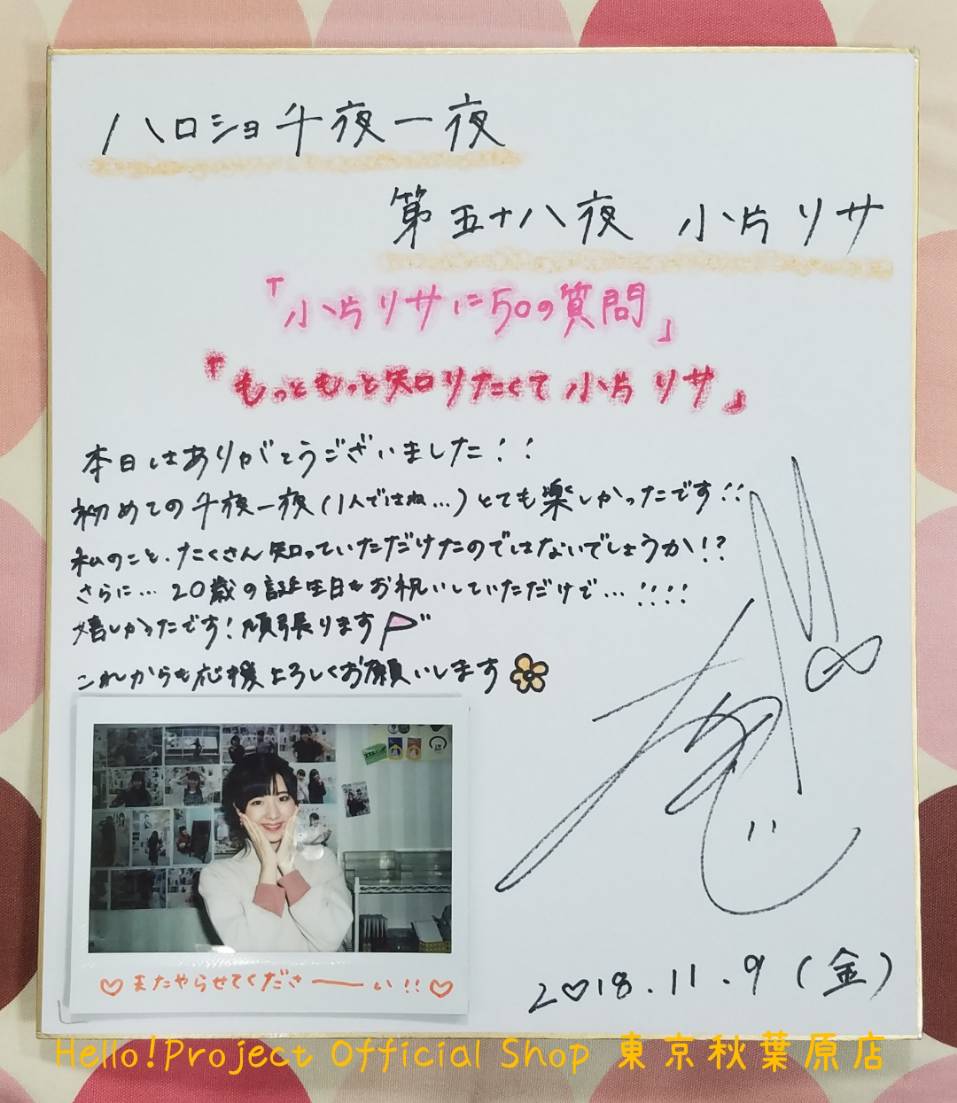 ハロショ千夜一夜
第五十八夜 小片リサ
「小片リサに50の質問」
「もっともっと知りたくて小片リサ」
本日はありがとうございました!!
初めての千夜一夜(1人ではね…)とても楽しかったです!!
私のこと、たくさん知っていただけたのではないでしょうか!?
さらに…20歳の誕生日もお祝いしていただけて…!!!!
嬉しかったです!頑張ります
これからも応援よろしくお願いします
♡またやらせてくださーい!!♡
2♡18.11.9(金)
Hello!Project Official Shop 東京秋葉原店